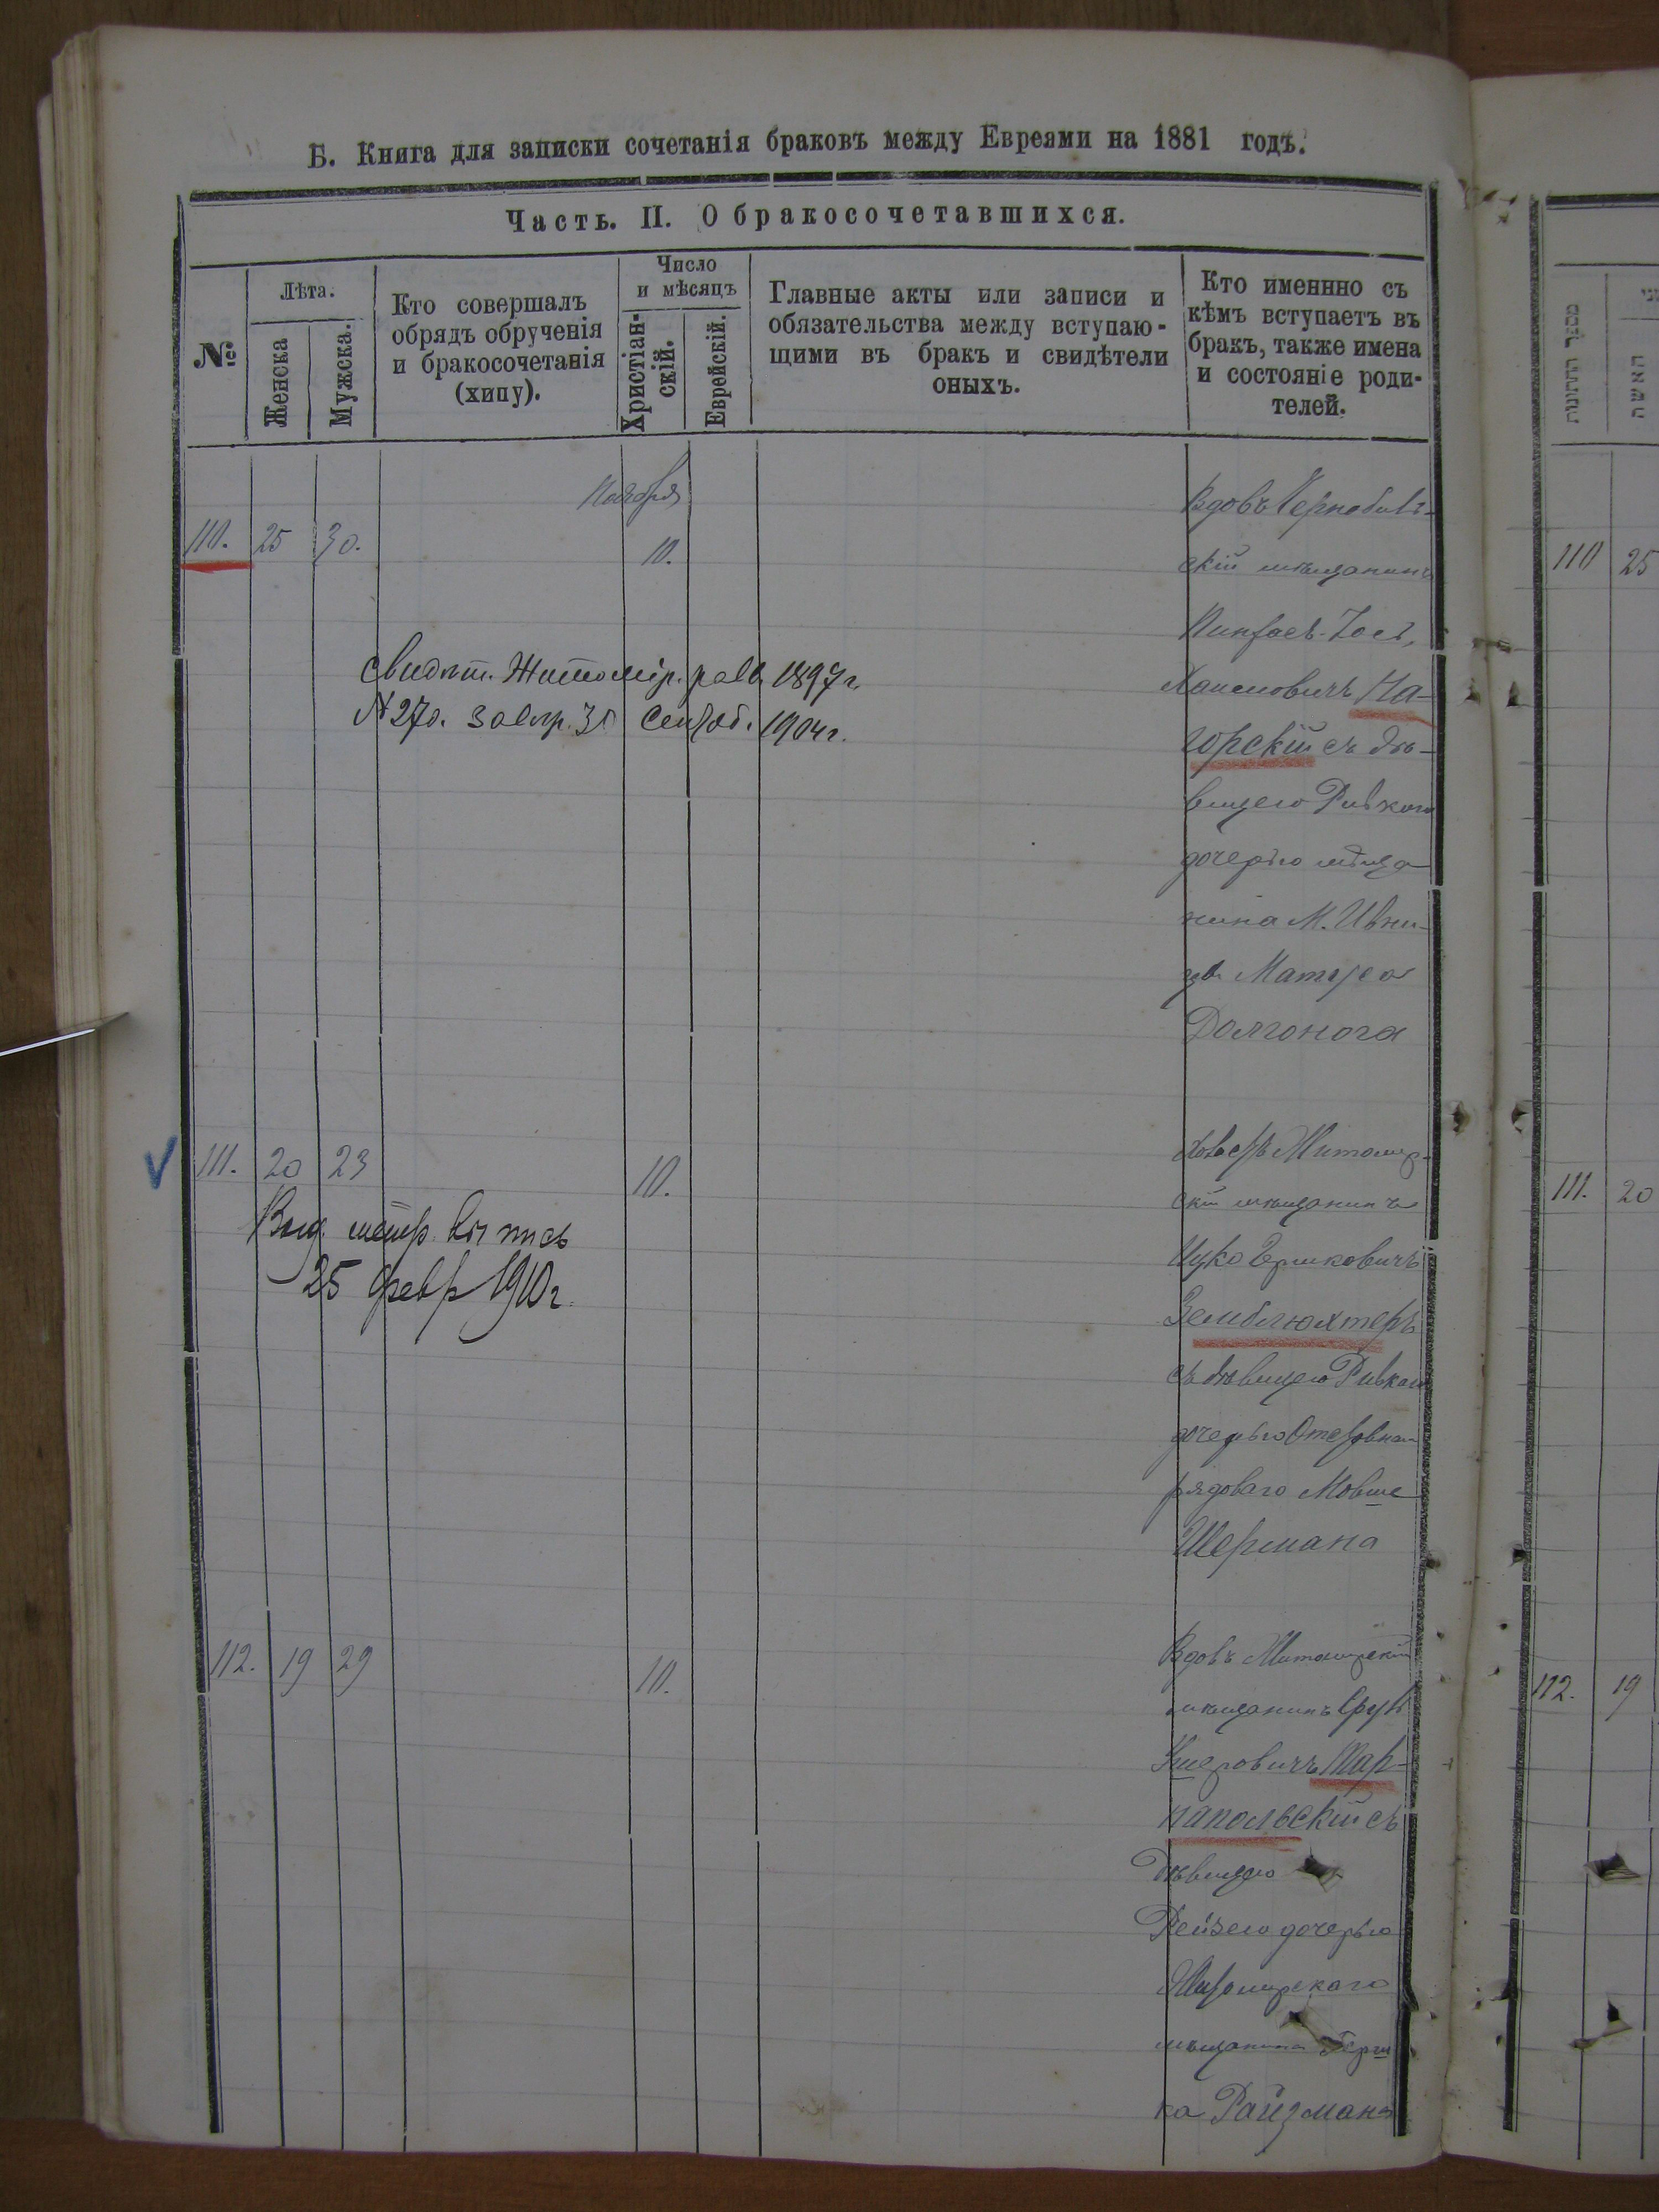 Б. Книга для записки сочетанія браковъ между Евреями на 1881 годъ.
Часть. II. О бракосочетавшихся.
№
Лѣта.
Женска
Мужска.
Кто совершалъ
обрядъ обрученія
и бракосочетанія
(хипу).
Число
и мѣсяцъ
Христіан-
скій.
Еврейскій.
Главные акты или записи и
обязательства между вступаю-
щими въ бракъ и свидѣтели
оныхъ.
Кто именнно съ
кѣмъ вступаетъ въ
бракъ, также имена
и состояніе роди-
телей.
Ноября
110. 25 30. 10.
Вдовъ Чернобыль-
скій мѣщанинъ
Пинхасъ-Іось
Хаимовичъ На-
горскій съ дѣ-
вицею Ривкою
дочерью мѣща
нина М. Ивни-
цы
Долгонога
свидѣт. Житомір. равв. 1897 г.
№ 270. завѣр. 30 Сентяб. 1904 г.
111. 20 23 10.
Выд. метр. выпись
25 февр 1910 г.
Холостъ Житомир-
скій мѣщанинъ
Ицко Гершковичъ
Земблюхтеръ
съ дѣвицею Ривкою
дочерью Отставнаго
рядоваго Мовше
Шермана
112. 19 29 10.
Вдовъ Житомирскій
мѣщанинъ Сруль
Ушеровичъ Тар-
напольскій съ
Дѣвицею
Рейзею дочерью
Житомирскаго
мѣщанина Герш
ка Райзмана
110 25
111. 20
112. 19
האשה